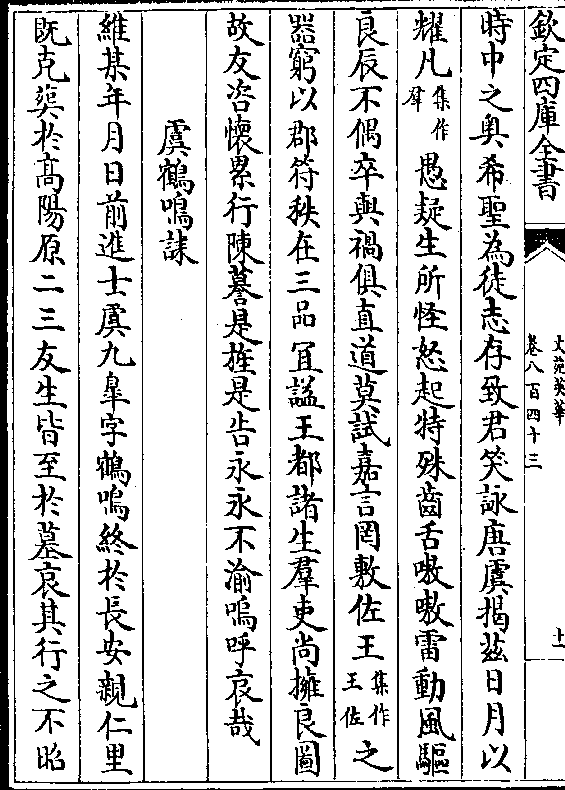 欽定四庫全書
文苑英華
卷八百四十三
十一
時中之奥希聖為徒志存致君笑詠唐虞揭兹日月以
耀凡集作羣愚疑生所怪怒起特殊齒舌嗷嗷雷動風驅
良辰不偶卒與禍俱直道莫試嘉言罔敷佐王集作王佐之
器窮以郡符秩在三品宜謚王都諸生羣吏尚擁良圖
故友咨懷累行陳謩是旌是告永永不渝嗚呼哀哉
虞鶴鳴誄
維某年月日前進士虞九臯字鶴鳴終於長安親仁里
既克葬於髙陽原二三友生皆至於墓哀其行之不昭